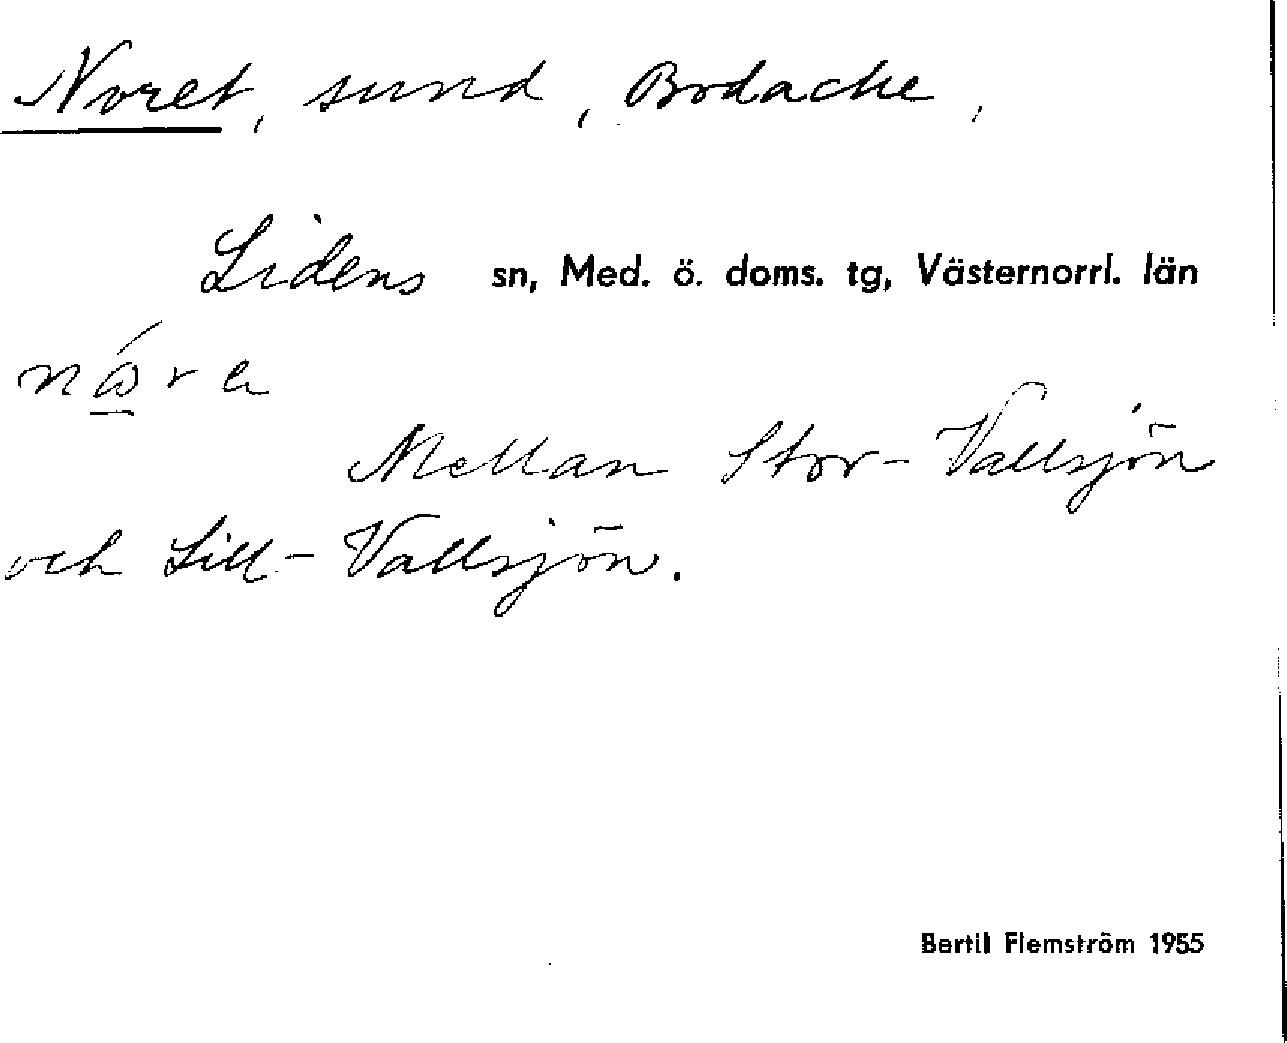 Noret, sund, Bodacke,
Lidens sn, Med. ö. doms. tg, Västernorrl. län
Mellan Stor-Vallsjön
och Lill-Vallsjön.
Bertil Flemström 1955